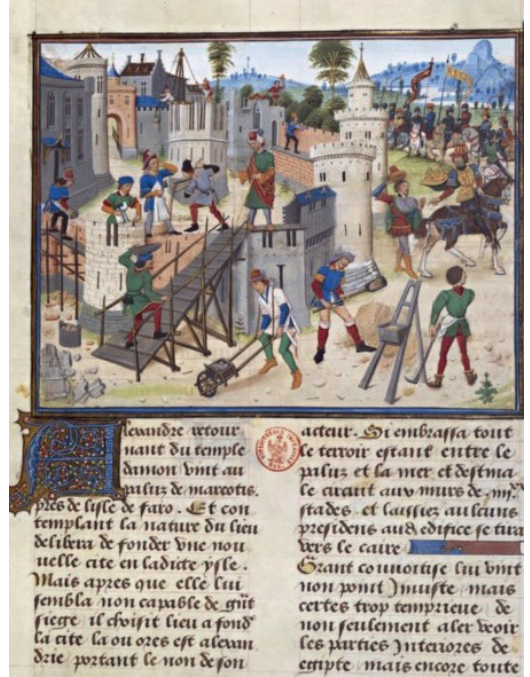 Alexandre retour
nant du temple
damon vint au
paluz de mareotis.
pres de lisle de faro. Et con
templant la nature du lieu
delibera de fonder vne nou
uelle cite en ladicte ysle.
Mais apres que elle lui
sembla non capable de gnt
siege il choisit lieu a fond
la cite la ou ores est alexan
drie portant le non de son
acteur. Si embrassa tout
le terroir estant entre le
paluz et la mer et destina
le circuit aux murs de
stades et laissiez aulcuns
presidens audit edifice se tira
vers le caire
Grant couuoitise lui vint
non point Iniuste mais
certes trop temprieue de
non seulement aler veoir
les parties Interiores de
egipte mais encore toute